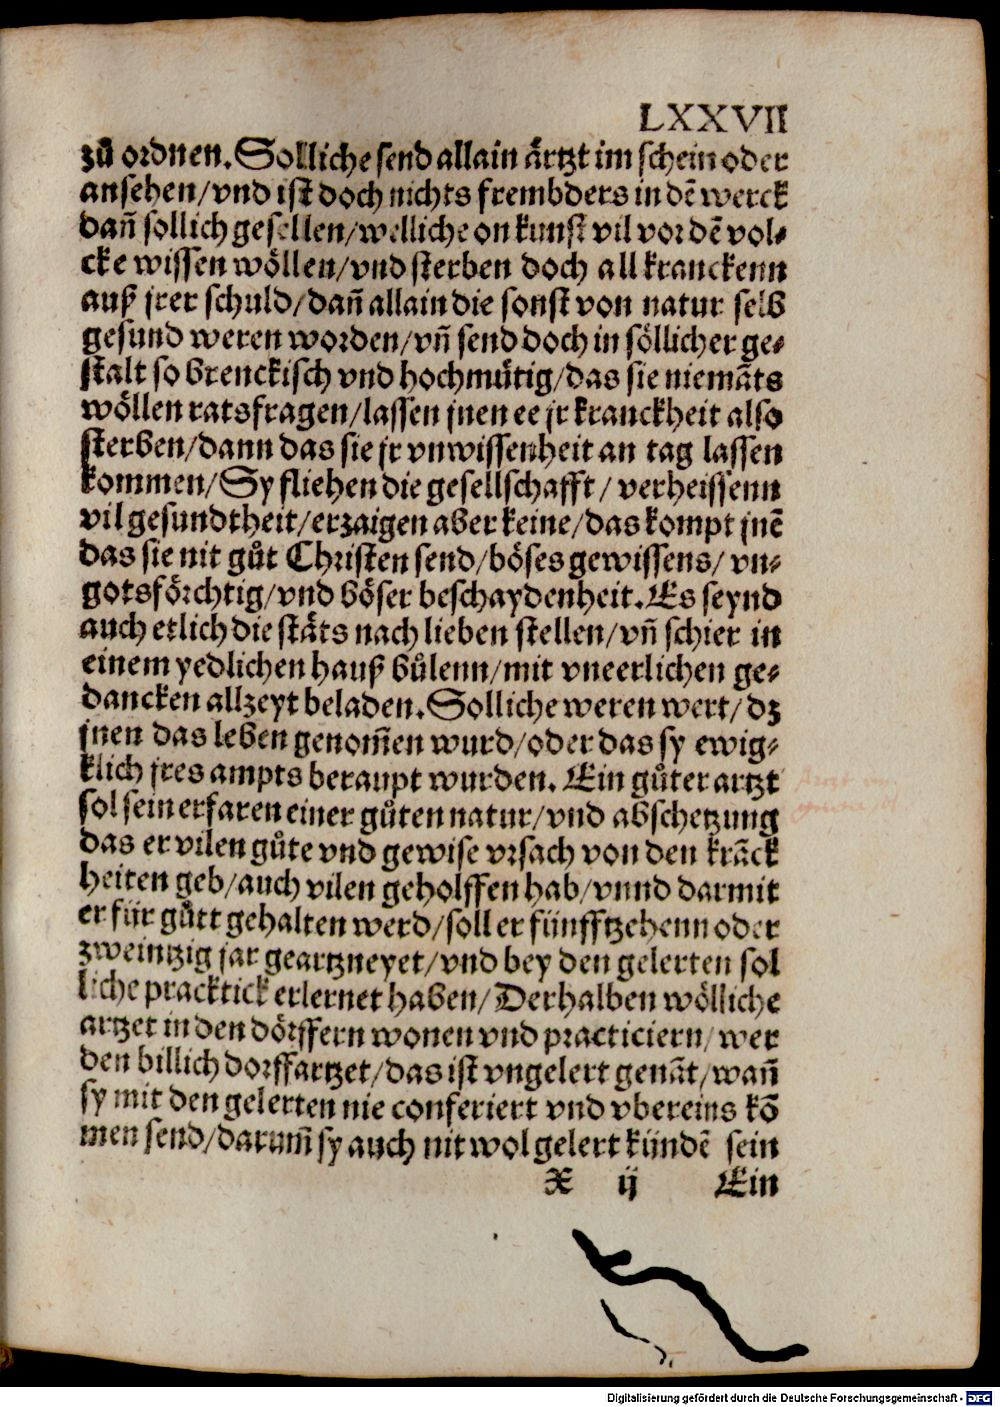 LXXVII
zů ordnen. Solliche send allain ärtzt im schein oder
ansehen/vnd ist doch nichts frembders in dē werck
dañ sollich gesellen/welliche on kunst vil vor dē vol-
cke wissen wöllen/vnd sterben doch all kranckenn
auß jrer schuld/dañ allain die sonst von natur selb
gesund weren worden/vñ send doch in söllicher ge-
stalt so brenckisch vnd hochmütig/das sie niemāts
wöllen ratsfragen/lassen jnen ee jr kranckheit also
sterben/dann das sie jr vnwissenheit an tag lassen
kommen/Sy fliehen die gesellschafft/ verheissenn
vil gesundtheit/erzaigen aber keine/das kompt jnē
das sie nit gůt Christen send/böses gewissens/ vn-
gotsförchtig/vnd böser beschaydenheit. Es seynd
auch etlich die stäts nach lieben stellen/vñ schier in
einem yedlichen hauß bůlenn/mit vneerlichen ge-
dancken allzeyt beladen. Solliche weren wert/ dz
jnen das leben genom̄en wurd/oder das sy ewig-
klich jres ampts beraupt wurden. Ein gůter artzt
sol sein erfaren einer gůten natur/vnd abschetzung
das er vilen gůte vnd gewise vrsach von den krāck
heiten geb/auch vilen geholffen hab/vnnd darmit
er für gůtt gehalten werd/soll er fünfftzehenn oder
zweintzig jar geartzneyet/vnd bey den gelerten sol
liche pracktick erlernet haben/Derhalben wölliche
artzet in den dörffern wonen vnd practiciern/ wer
den billich dorffartzet/das ist vngelert genāt/wañ
sy mit den gelerten nie conferiert vnd vbereins kō
men send/darum̄ sy auch nit wol gelert kündē sein
X ij Ein
Digitalisierung gefördert durch die Deutsche Forschungsgemeinschaft - DFG